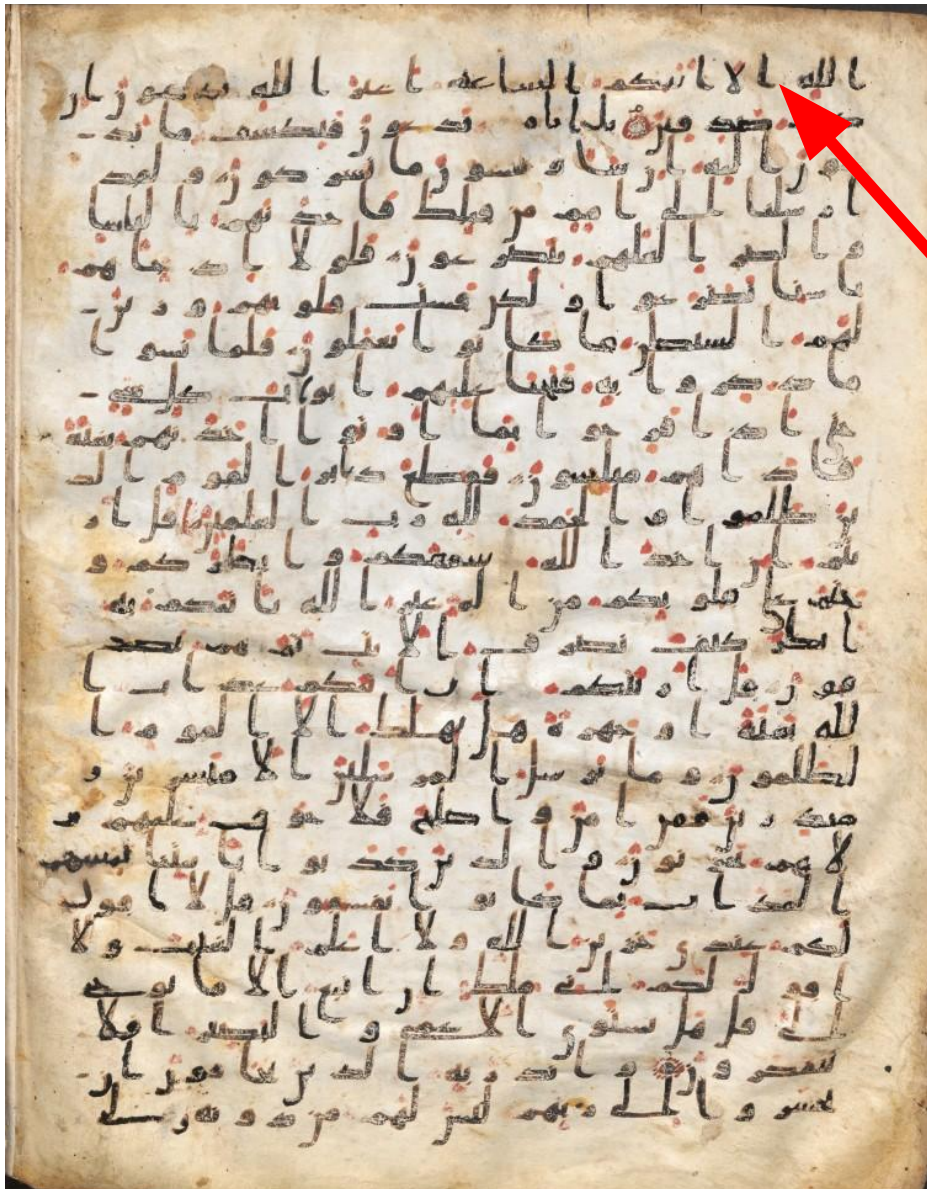 الله ا لا اتتكم الساعة اغير الله تدعون ان
كنتم صدقين بل اياه تدعون فيكشف ما تد
عون اليه ان شا وتنسون ما تشركون ولقد
ارسلنا الى امم من قبلك فاخذنهم بالباسا
والضرا لعلهم يتضرعون فلولا اذ جاهم
باسنا تضرعوا ولكن قست قلوبهم وزين
لهم الشيطن ما كانوا يعملون فلما نسوا
ما ذكروا به فتحنا عليهم ابوب كل شى
حتى اذا فرحوا بما اوتوا اخذنهم بغتة
فاذا هم مبلسون فقطع دابر القوم الذ
ين ظلموا والحمد لله رب العلمين قل ار
يتم ان اخذ الله سمعكم وابصركم و
ختم على قلوبكم من اله غير الله ياتيكم به
انظر كيف نصرف الايت ثم هم يصد
فون قل اريتكم ان اتيكم عذاب ا
لله بغتة او جهرة هل يهلك الا القوم ا
لظلمون وما نرسل المرسلين الا مبشرين و
منذرين فمن امن واصلح فلا خوف عليهم و
لا هم يحزنون والذين كذبوا بايتنا يمسهم
العذاب بما كانوا يفسقون قل لا اقول
لكم عندى خزين الله ولا اعلم الغيب ولا
اقول لكم انى ملك ان اتبع الا ما يوحى
الى قل هل يستوى الاعمى والبصير افلا
تتفكرون وانذر به الذين يخافون ان
يحشروا الى ربهم ليس لهم من دونه ولى